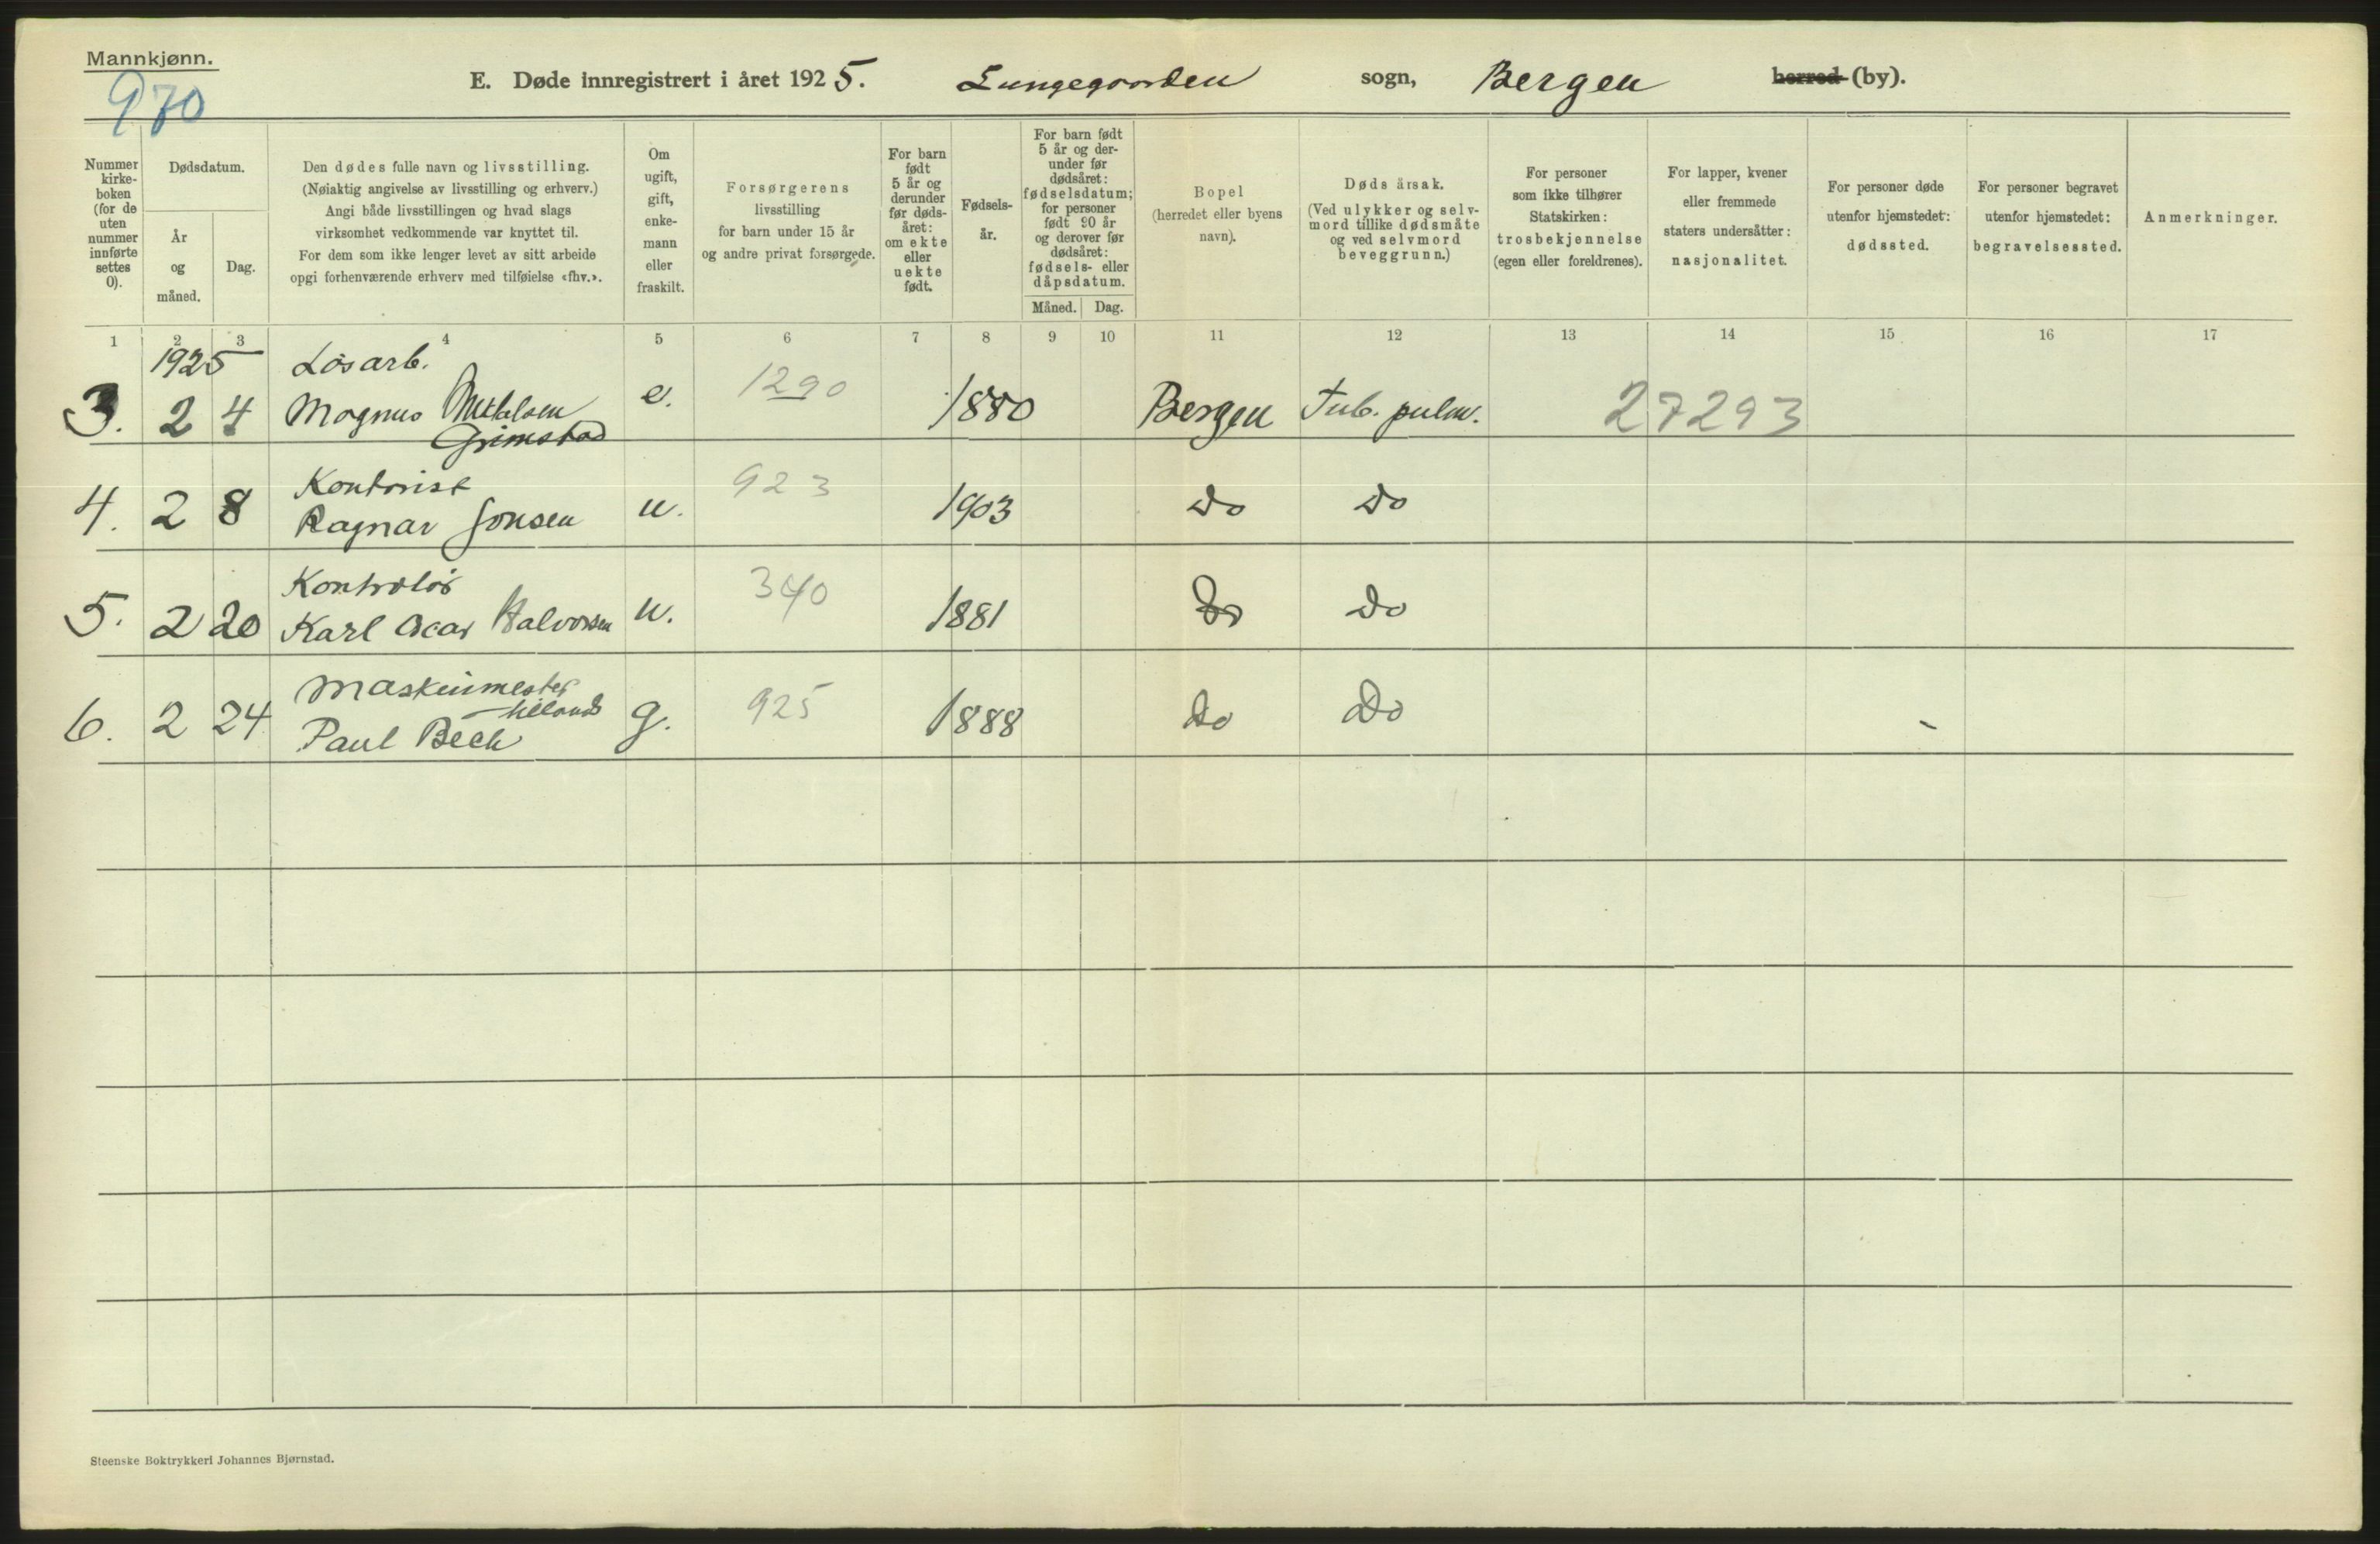 Mannkjønn.
970
E. Døde innregistrert i året 1925. Lungegaarden sogn, Bergen herred (by).
Nummer
kirke-
boken
(for de
uten
nummer
innførte
settes
0).
Dødsdatum.
År
og
måned.
Dag.
Den dødes fulle navn og livsstilling.
(Nøiaktig angivelse av livsstilling og erhverv.)
Angi både livsstillingen og hvad slags
virksomhet vedkommende var knyttet til.
For dem som ikke lenger levet av sitt arbeide
opgi forhenværende erhverv med tilføielse «fhv.».
Om
ugift,
gift,
enke-
mann
eller
fraskilt.
Forsørgerens
livsstilling
for barn under 15 år
og andre privat forsørgede.
For barn
født
5 år og
derunder
før døds-
året:
om ekte
eller
uekte
født.
Fødsels-
år.
For barn født
5 år og der-
under før
dødsåret:
fødselsdatum;
for personer
født 90 år
og derover før
dødsåret:
fødsels- eller
dåpsdatum.
Måned. Dag.
Bopel
(herredet eller byens
navn).
Dødsårsak.
(Ved ulykker og selv-
mord tillike dødsmåte
og ved selvmord
beveggrunn.)
For personer
som ikke tilhører
Statskirken:
trosbekjennelse
(egen eller foreldrenes).
For lapper, kvener
eller fremmede
staters undersåtter:
nasjonalitet.
For personer døde
utenfor hjemstedet:
dødssted.
For personer begravet
utenfor hjemstedet:
begravelsessted.
Anmerkninger.
1 2 3 4 5 6 7 8 9 10 11 12 13 14 15 16 17
1925 Løsarb.
3. 2 4 Magnus Grimstad e. 1290 1880 Bergen Tub. pulm. 27293
Kontorist
4. 2 8 Ragnar Jonsen u. 923 1903 Do Do
Kontrolør
5. 2 20 Karl Oscar Halvorsen u. 340 1881 Do Do
Maskinmester
6. 2 24 Paul Bech g. 925 1888 Do Do
Steenske Boktrykkeri Johannes Bjørnstad.